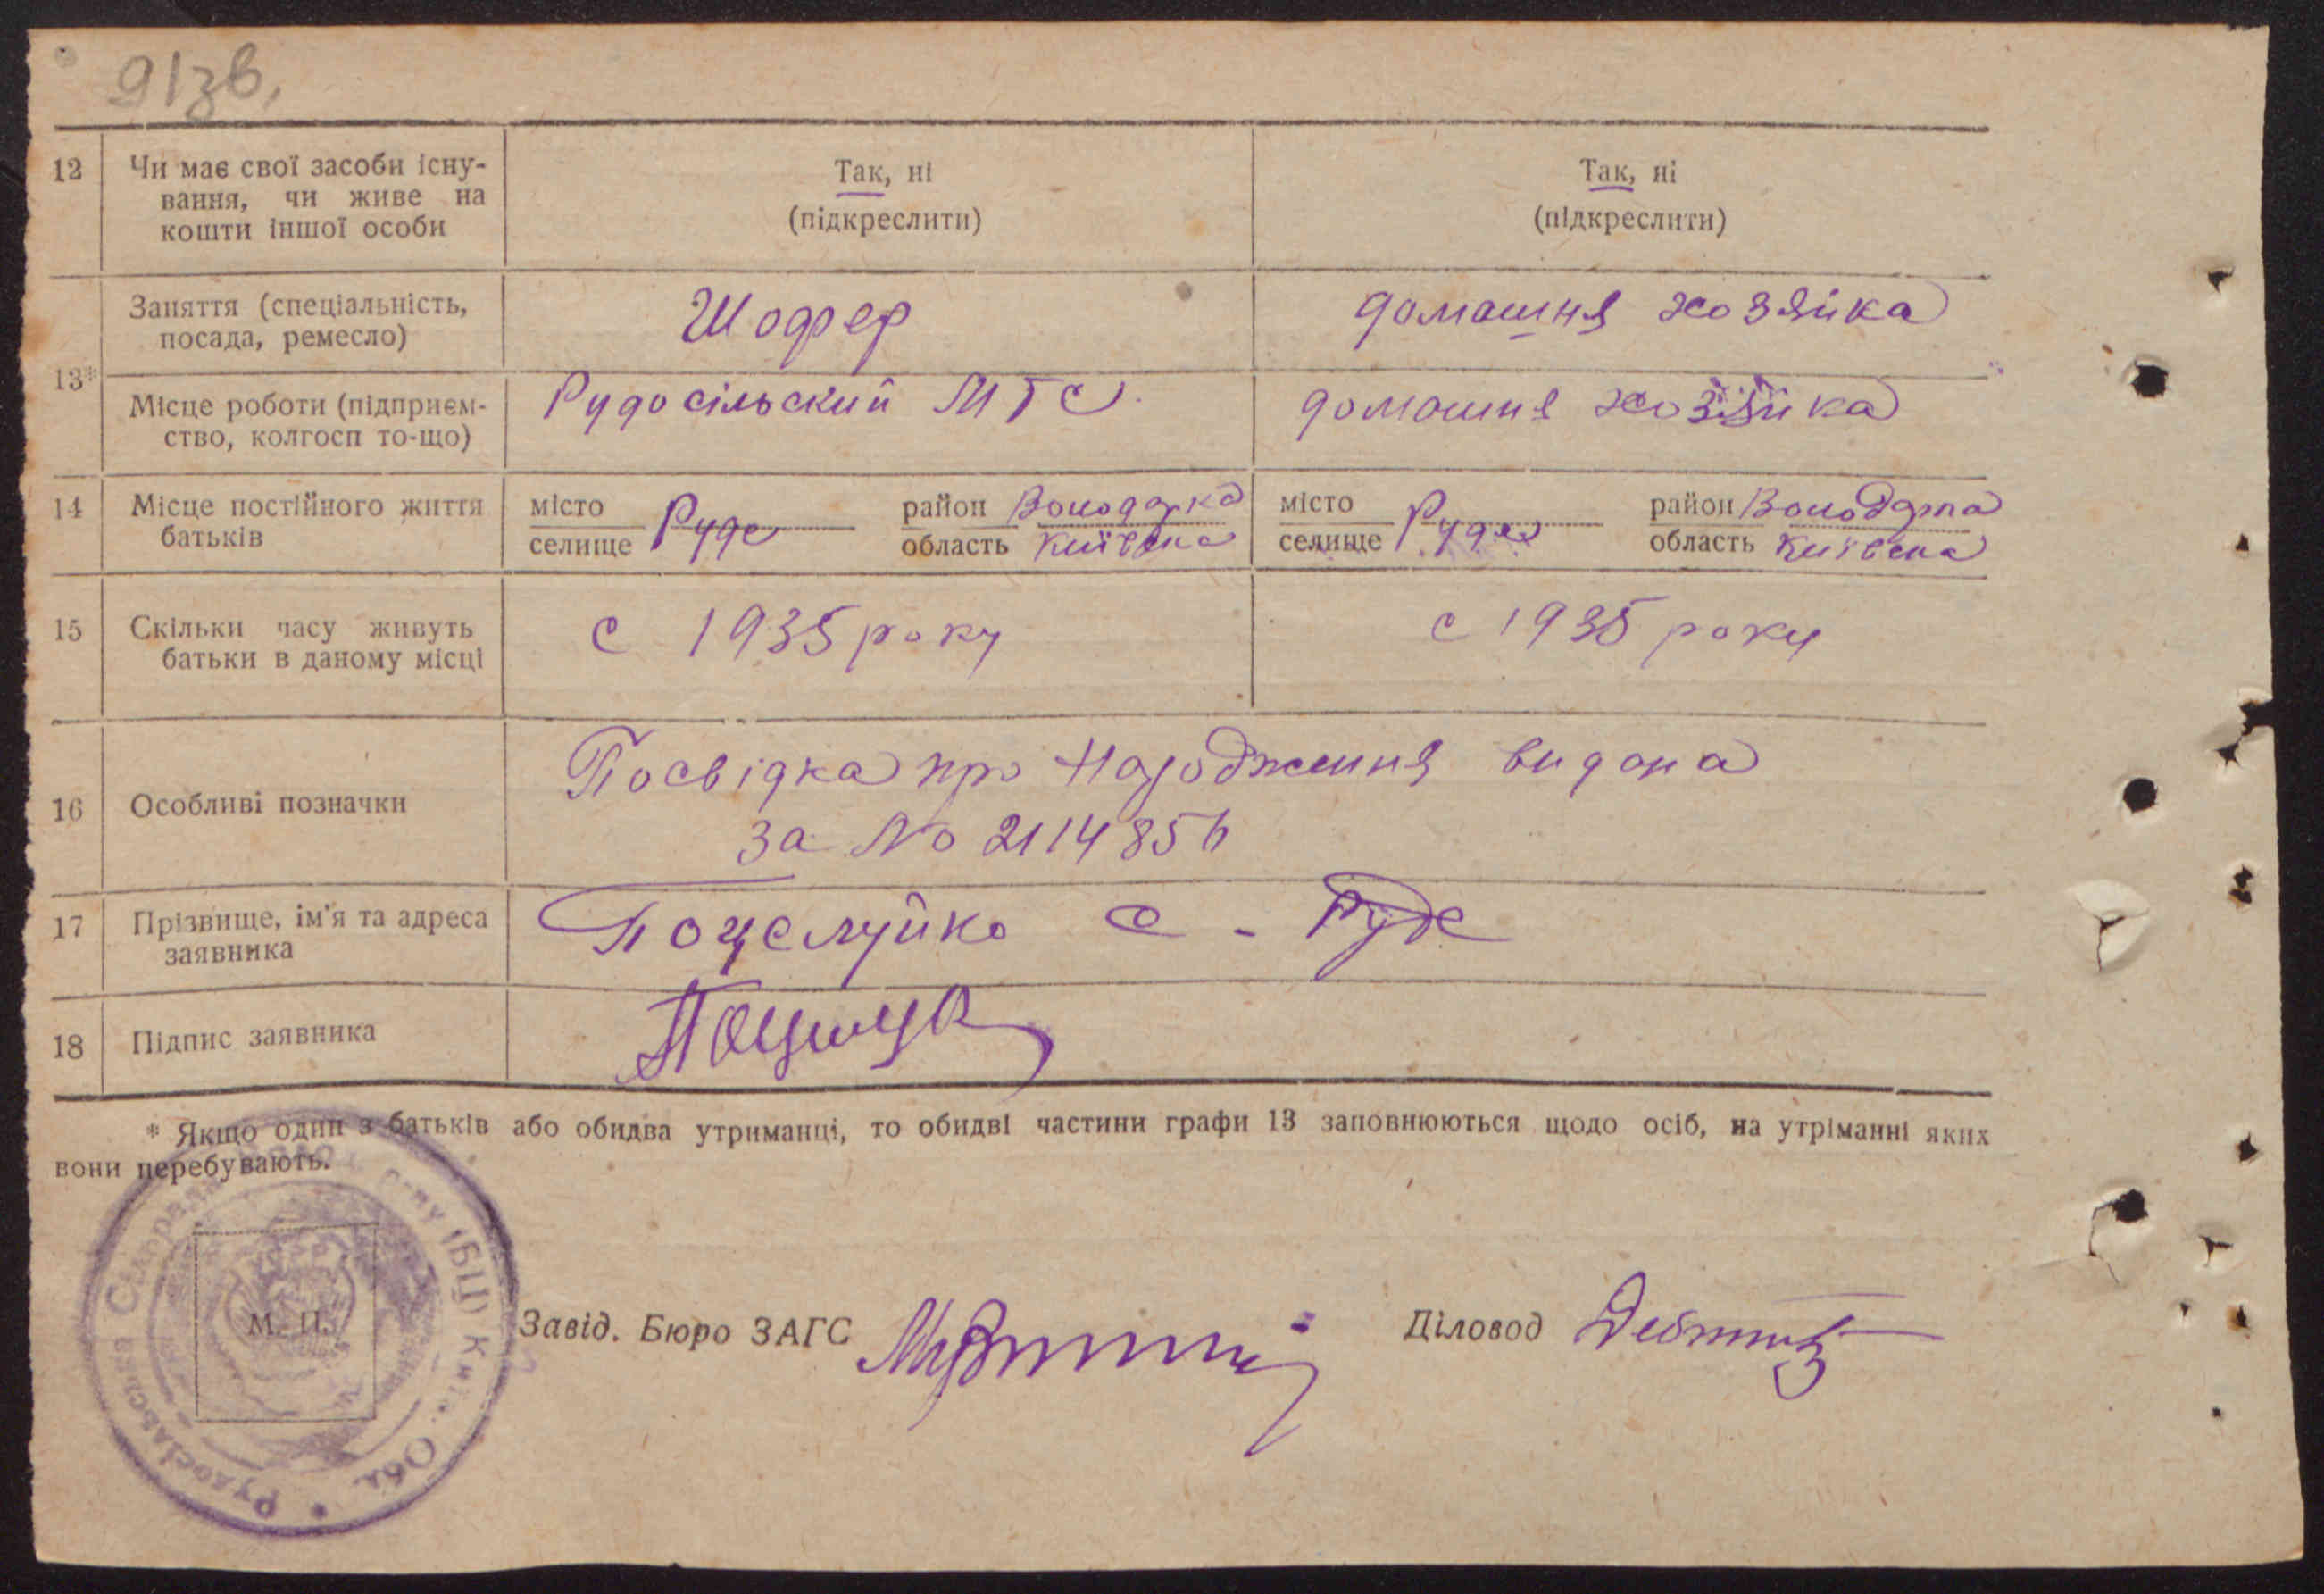 91зв.
12
Чи має свої засоби існу-
вання, чи живе на
кошти іншої особи
Так, ні
(підкреслити)
Так, ні
(підкреслити)
13*
Заняття (спеціальність,
посада, ремесло)
Шофер
домашня хозяйка
Місце роботи (підприєм-
ство, колгосп то-що)
Рудосільский МТС
домашня хозяйка
14
Місце постійного життя
батьків
місто
селище
Руде
район Володарка
область Київска
місто
селище
Руде
район Володарка
область Київска
15
Скільки часу живуть
батьки в даному місці
с 1935 року
с 1935 року
16
Особливі позначки
Посвідка про Народження видана
за No 2114856
17
Прізвище, ім'я та адреса
заявника
Поцелуйко с - Руде
18
Підпис заявника
* Якщо один з батьків або обидва утриманці, то обидві частини графи 13 заповнюються щодо осіб, на утріманні яких
вони перебувають.
М. П.
Рудосільська
(БЦ) Київ. Обл.
Завід. Бюро ЗАГС
Діловод